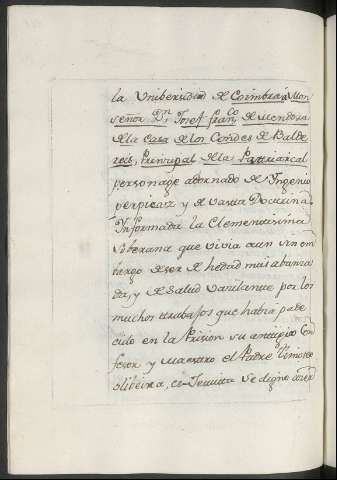 la Unibersidad de Coimbra, à Mon
señor Dn. Josef Franco. de Mendoza
de la Casa de los Condes de Balde
reis, Principal de la Patriarcal
personage adornado de Ingenio
perpicaz y de vasta Doctrina.
Informada la Clementissima
Soberana que vivia aun sin em
bargo de ser de hedad mui abanza
da, y de salud vacilante por los
muchos trabajos que habia pade
cido en la Prision su antiguo Con
fesor y Maestro el Padre Timoteo
oliveira, ex-Jesuita se digno